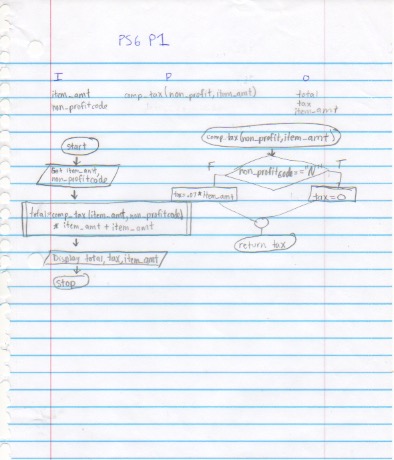 PS6 P1
I P O
item_amt comp_tax(non_profit, item_amt) total
non_profitcode tax
item_amt
start
Get item_amt,
non_profitcode
total=comp_tax(item_amt, non_profitcode)
* item_amt + item_amt
Display total, tax, item_amt
stop
comp_tax(non_profit, item_amt)
F non_profitcode=="N" T
tax=.07*item_amt tax=0
return tax